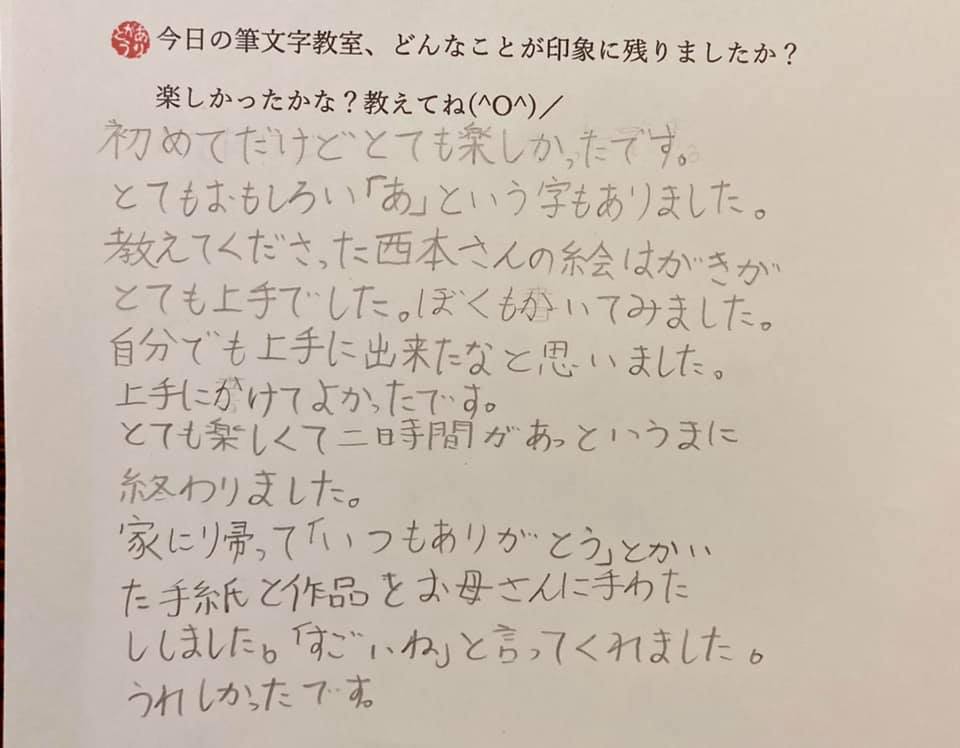 ありがとう
今日の筆文字教室、どんなことが印象に残りましたか？
楽しかったかな？教えてね(^O^)／
初めてだけどとても楽しかったです。
とてもおもしろい「あ」という字もありました。
教えてくださった西本さんの絵はがきが
とても上手でした。ぼくもかいてみました。
自分でも上手に出来たなと思いました。
上手にかけてよかったです。
とても楽しくて二時間があっというまに
終わりました。
家に帰って「いつもありがとう」とかい
た手紙と作品をお母さんに手わた
ししました。「すごいね」と言ってくれました。
うれしかったです。